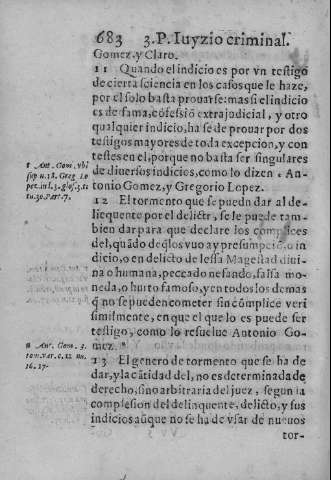 683 3.P. Iuyzio criminal.
Gomez, y Claro.
11 Quando el indicio es por vn testigo
de cierta sciencia en los casos que le haze,
por el solo basta prouarse: mas si el indicio
es de fama, cõfesiõ extrajudicial, y otro
qualquier indicio, ha se de prouar por dos
testigos mayores de toda excepcion, y con
testes en el, porque no basta ser singulares
de diuersos indicios, como lo dizen. An-
tonio Gomez, y Gregorio Lopez.
t Ant. Gom. vbi
sup n. 18. Greg Lo
pez. in l. 3. glos. 3. ti
tu. 30. Part. 7.
12 El tormento que se puedn dar al de-
licquente por el delictr, se le puede tam-
bien dar para que declare los complices
del, quãdo de q̃los vuo ay presumpciõ, o in
dicio, o en delicto de lessa Magestad diui
na o humana, peccado nefando, falsa mo-
neda, o hurto famoso, y en todos los demas
q̃ no se pueden cometer sin cõmplice veri
similmente, en que el que lo es puede ser
testigo, como lo resuelue Antonio Go-
mez. u
u Ant. Gom. 3.
tom. var. c. 12 nu.
16. 17.
13 El genero de tormento que se ha de
dar, y la cãtidad del, no es determinada de
derecho, sino arbitraria del juez, segun la
complesion del delinquente, delicto, y sus
indicios aũque no se ha de vsar de nueuos
tor-